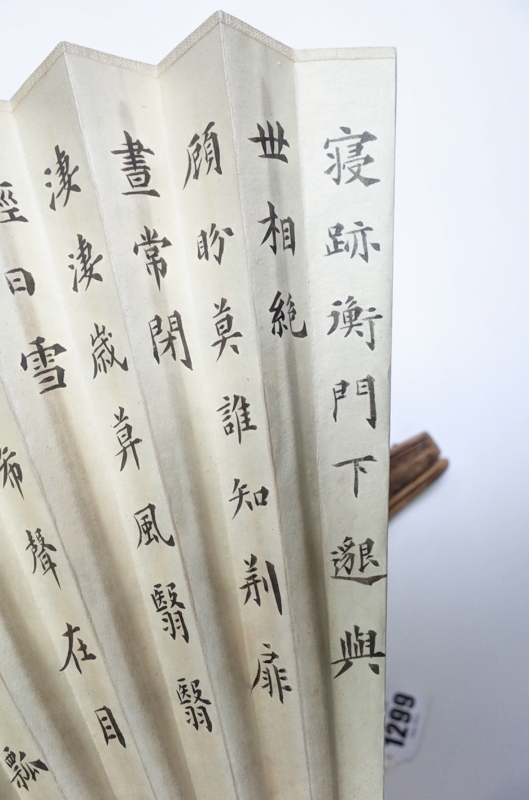 寢跡衡門下邈與
世相絶
顧盼莫誰知荊扉
晝常閉
淒淒歲莫風翳翳
經日雪
希聲在目
瓢
1299